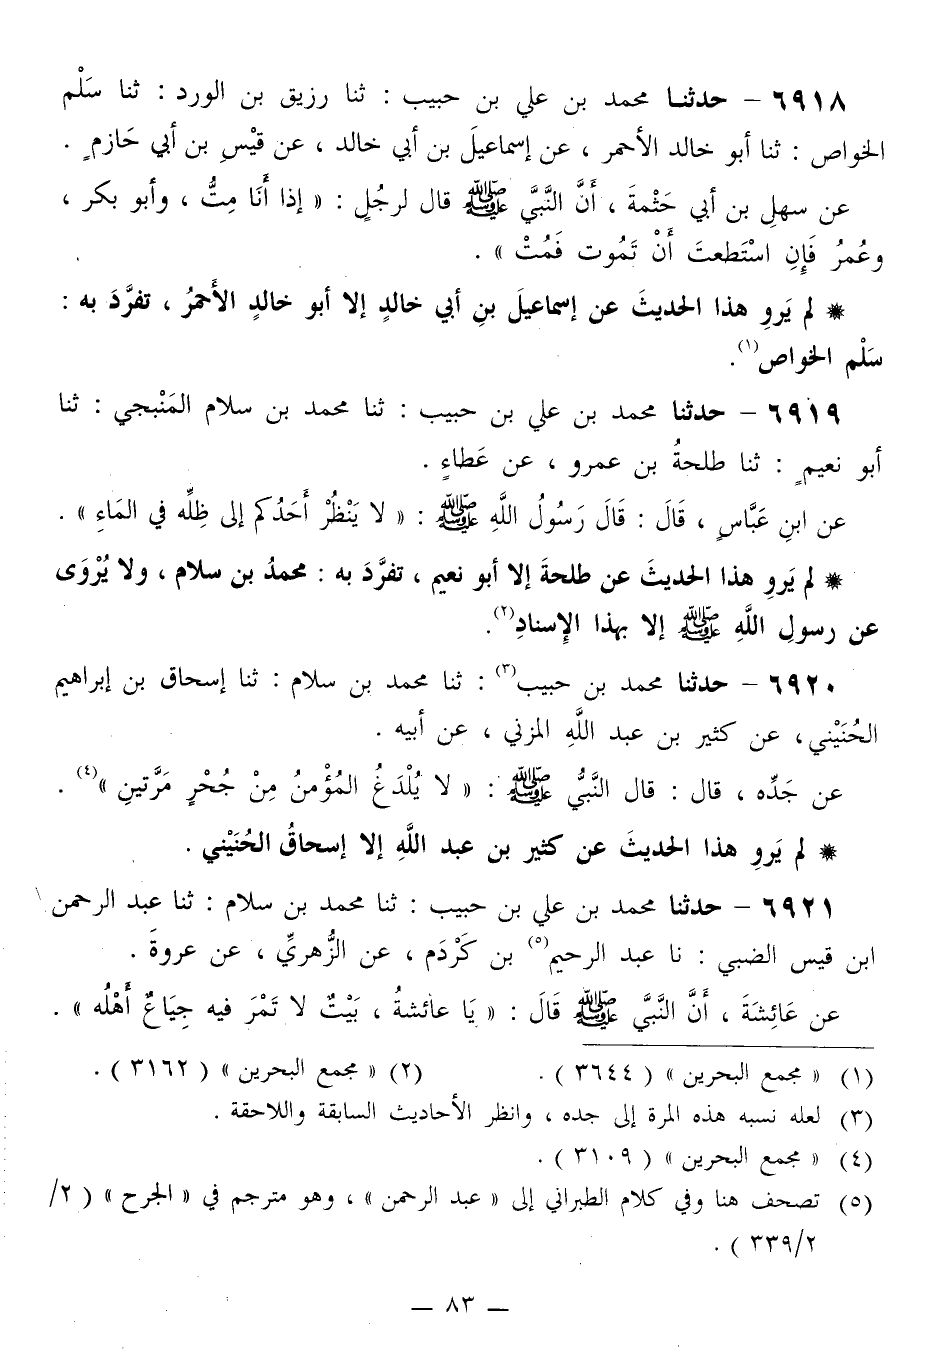 ٦٩١٨ – حدثنـا محمد بن علي بن حبيب : ثنا رزيق بن الورد : ثنا سَلْم
الخواص : ثنا أبو خالد الأحمر ، عن إسماعيلَ بن أبي خالد ، عن قيْسِ بن أبي حَازمٍ .
عن سهلِ بن أبي حَثْمةَ ، أَنَّ النَّبيَّ ﷺ قال لرجُلٍ : « إذا أَنَا مِتُّ ، وأبو بكر ،
وعُمرُ فَإِنِ اسْتَطعتَ أَنْ تَمُوت فَمُتْ » .
* لم يَروِ هذا الحديثَ عن إسماعيلَ بنِ أبي خالدٍ إلا أبو خالدٍ الأَحمرُ ، تفرَّدَ به :
سَلْم الخواص(١).
٦٩١٩ – حدثنا محمد بن علي بن حبيب : ثنا محمد بن سلام المَنْبجي : ثنا
أبو نعيمٍ : ثنا طلحةُ بن عمرو ، عن عَطاءٍ .
عن ابنِ عَبَّاسٍ ، قَالَ : قَالَ رَسُولُ اللَّهِ ﷺ : « لا يَنْظُرْ أَحَدُكم إلى ظِلِّه في المَاءِ » .
* لم يَروِ هذا الحديثَ عن طلحةَ إلا أبو نعيم ، تفرَّدَ به : محمدُ بن سلام ، ولا يُرْوَى
عن رسولِ اللَّهِ ﷺ إلا بهذا الإِسنادِ(٢).
٦٩٢٠ – حدثنا محمد بن حبيب(٣) : ثنا محمد بن سلام : ثنا إسحاق بن إبراهيم
الحُنَيْني، عن كثير بن عبد اللَّهِ المزني ، عن أبيه .
عن جَدِّه ، قال : قال النَّبيُّ ﷺ : « لا يُلْدَغُ المُؤْمنُ مِنْ جُحْرٍ مَرَّتينِ »(٤) .
* لم يَروِ هذا الحديثَ عن كثير بن عبد اللَّهِ إلا إسحاقُ الحُنَيْني .
٦٩٢١ – حدثنا محمد بن علي بن حبيب : ثنا محمد بن سلام : ثنا عبد الرحمن
ابن قيس الضبي : نا عبد الرحيم(٥) بن كَرْدَم ، عن الزُّهريِّ ، عن عروةَ .
عن عَائِشَةَ ، أَنَّ النَّبيَّ ﷺ قَالَ : « يَا عائشةُ ، بَيْتٌ لا تَمْرَ فيه جِيَاعٌ أَهْلُه » .
(١) « مجمع البحرين » ( ٣٦٤٤ ) . (٢) « مجمع البحرين » ( ٣١٦٢ ) .
(٣) لعله نسبه هذه المرة إلى جده ، وانظر الأحاديث السابقة واللاحقة .
(٤) « مجمع البحرين » ( ٣١٠٩ ) .
(٥) تصحف هنا وفي كلام الطبراني إلى « عبد الرحمن » ، وهو مترجم في « الجرح » ( ٢/
٣٣٩/٢ ) .
— ٨٣ —